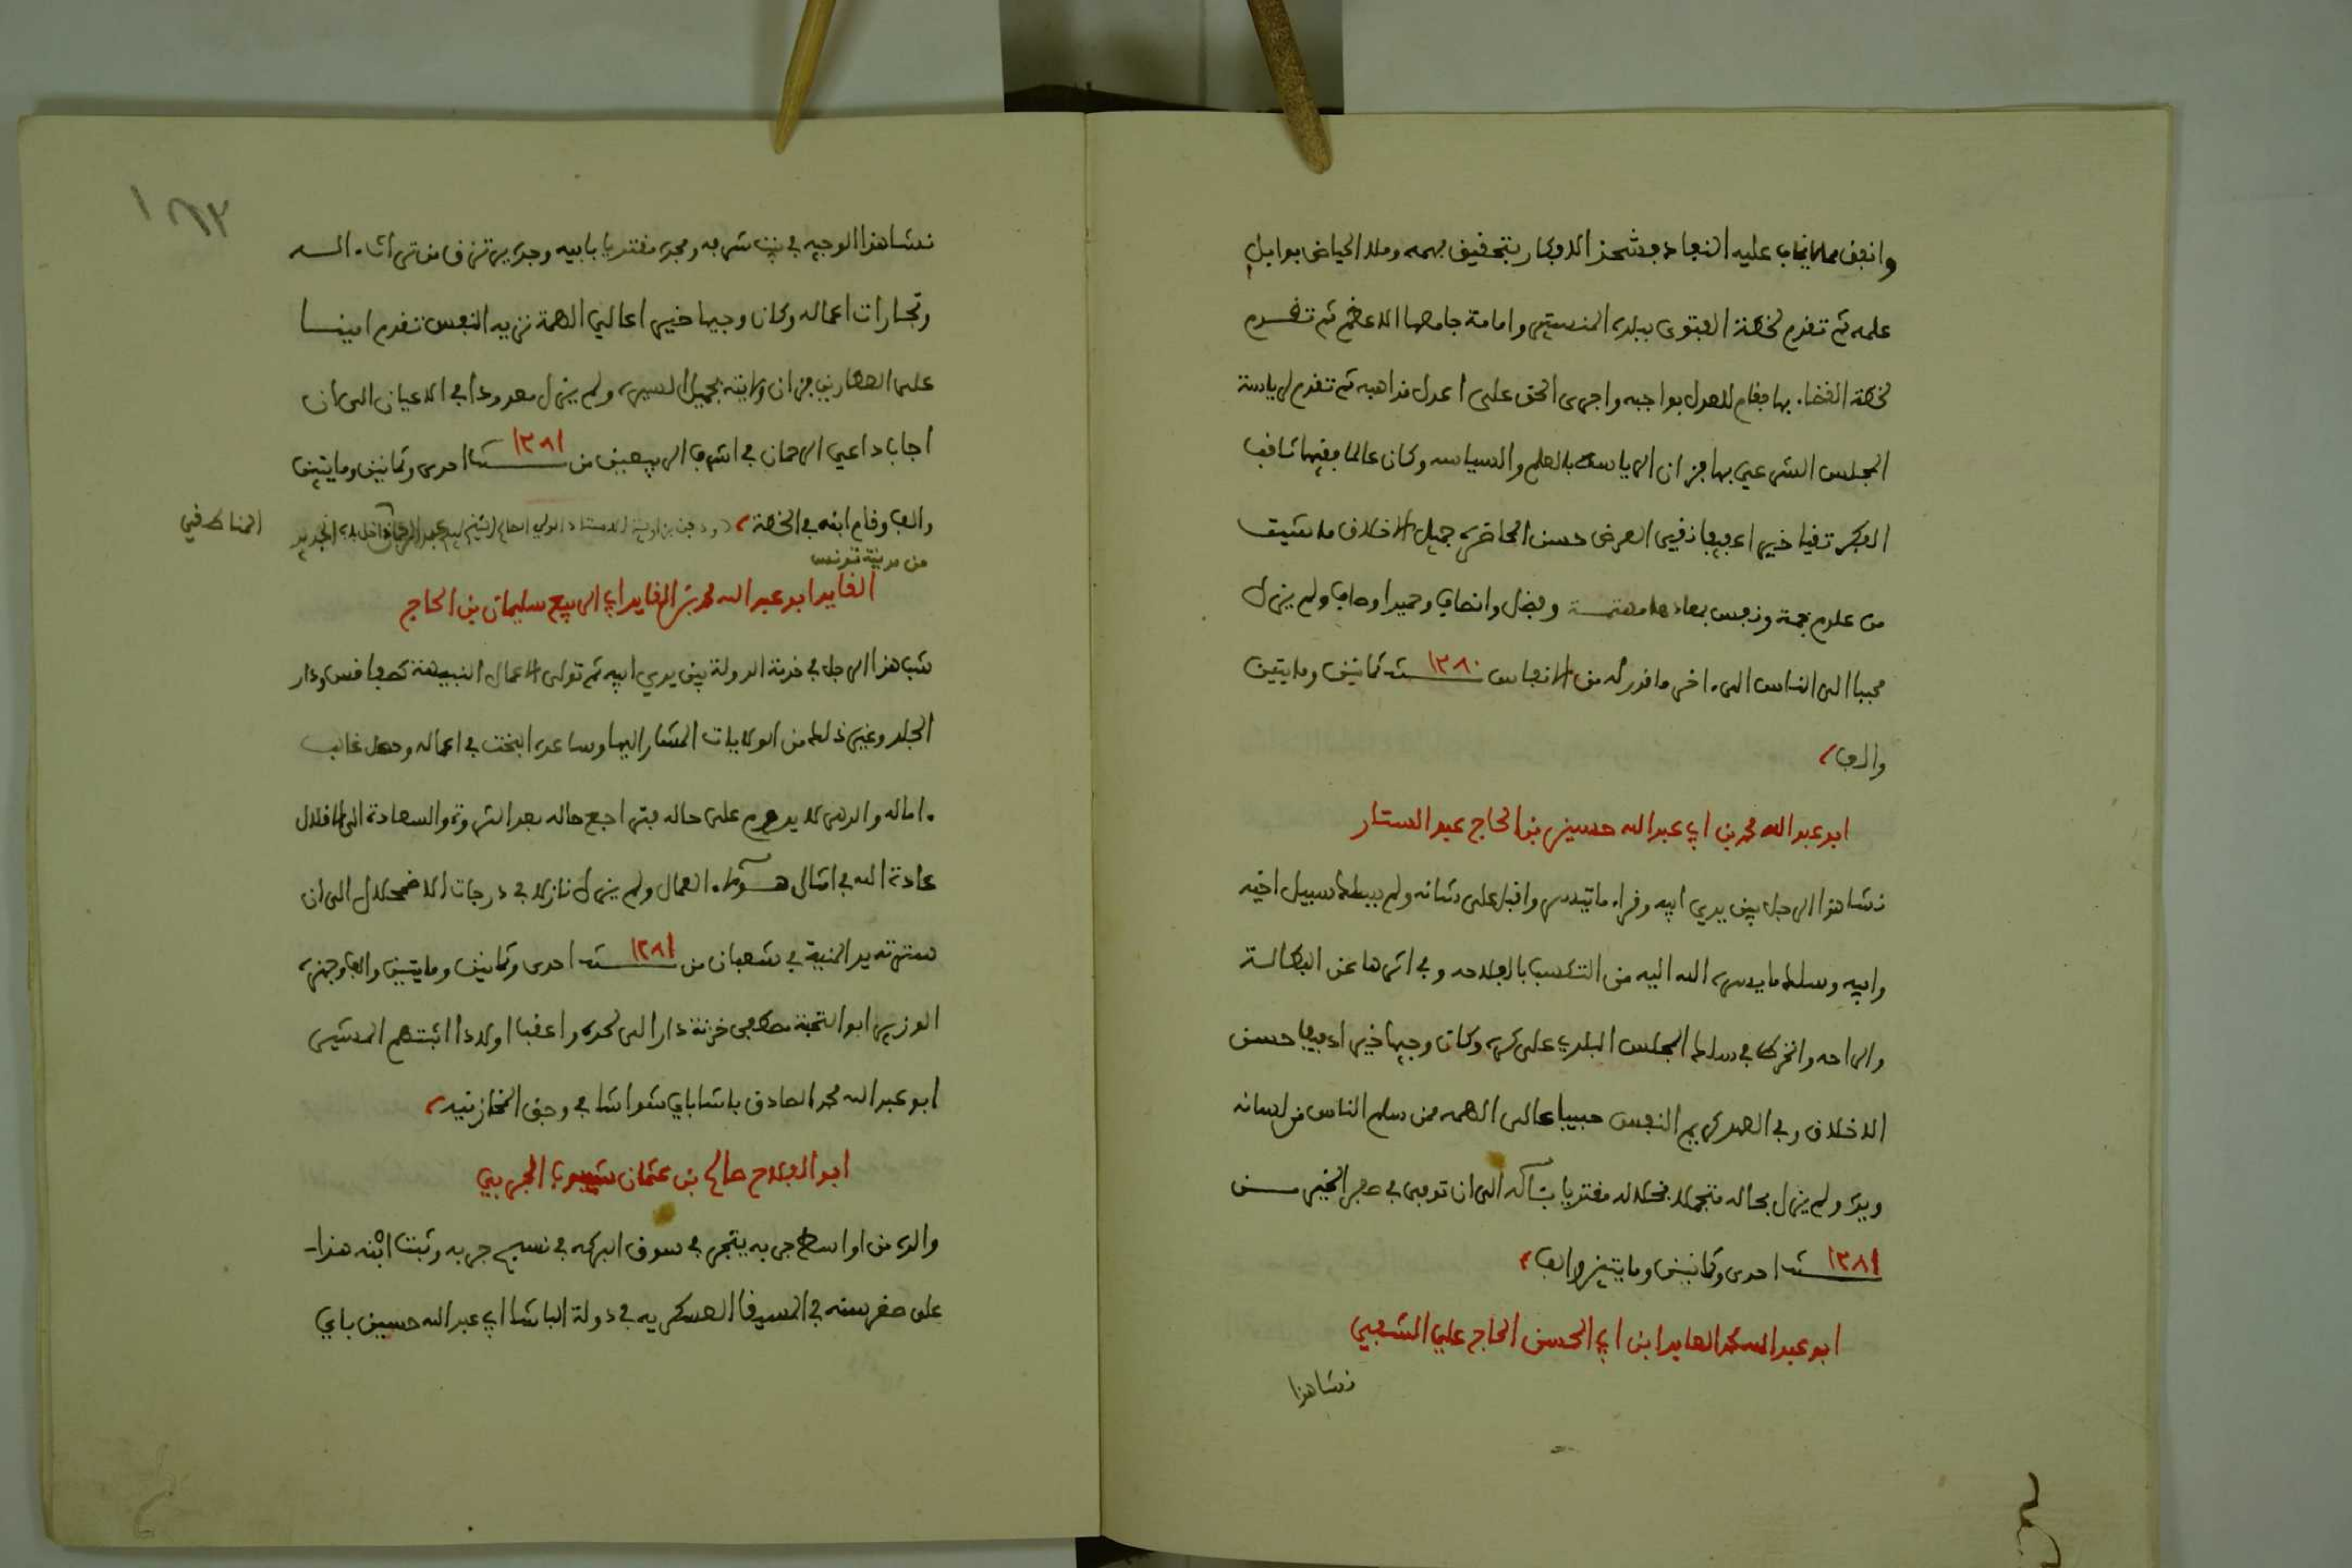 وانفق مما يخاف عليه النفاد فشحذ الافكار بتحقيق فهمه وملا الحياض بوابل
علمه ثم تقدم لخطة الفتوى ببلده المنستير وامامة جامعها الاعظم ثم تقدم
لخطة القضاء بها فقام للعدل بواجبه واجرى الحق على اعدل مذاهبه ثم تقدم لرياسة
المجلس الشرعي بها فزان الرياسة بالعلم والسياسه وكان عالما فقيها ثاقب
الفكر تقيا خيرا عفيفا نقي العرض حسن المحاضرة جميل الاخلاق ما شيت
من علوم جمة ونفس بمعادها مهتمة وفضل وانصاف وحميد اوصاف ولم يزل
محببا الى الناس الى اخر ما قدر له من الانفاس سنة ١٢٨٠ ثمانين ومايتين
والف
ابو عبد الله محمد بن ابي عبد الله حسين بن الحاج عبد الستار
نشا هذا الرجل بين يدي ابيه وقرا ما تيسر واقبل على شانه ولم يسلك سبيل اخيه
وابيه وسلك ما يسره الله اليه من التكسب بالفلاحه وفر اثرها عن البطالة
والراحه وانخرط في سلك المجلس البلدي على كره وكان وجيها خيرا عفيفا حسن
الاخلاق وفي العهد كريم النفس حبيبا عالى الهمه ممن سلم الناس من لسانه
ويده ولم يزل بحاله متجملا بخلاله مقتديا بئاله الى ان توفى في صفر الخير من
سنة ١٢٨١ احدى وثمانين ومايتين والف
ابو عبد الله محمد العابد ابن ابي الحسن الحاج علي الشعبي
نشا هذا
١٦٢
نشا هذا الوجيه في بيت شرفه ومجده مقتديا بابيه وجده يرتزق من تراث اباء اليه
وتجارات اعماله وكان وجيها خيرا عالي الهمة نزيه النفس تقدم امينا
على العطارين فزان ولايته بجميل السيرة ولم يزل معدودا في الاعيان الى ان
اجاب داعي الرحمان في اشرف الربيعين من سنة ١٢٨١ احدى وثمانين ومايتين
والف وقام ابنه في الخطة ودفن بزاوية الاستاذ الولي الصالح الشيخ سيدي عبد الرحمان داخل باب الجديد
المناطقي
من مدينة تونس
القايد ابو عبد الله محمد بن القايد ابي الربيع سليمان بن الحاج
شب هذا الرجل في خدمة الدولة بين يدي ابيه ثم تولى الاعمال النبيهة كصفاقس ودار
الجلد وغير ذلك من الولايات المشار اليها وساعده البخت في اعماله وحصل غالب
ءاماله والدهر لا يدوم على حاله فتراجع حاله بعد الثروة والسعادة الى الاقلال
عادة الله في امثال هؤلاء العمال ولم يزل نازلا في درجات الاضمحلال الى ان
سترته يد المنية في شعبان من سنة ١٢٨١ احدى وثمانين ومايتين والف وجهزه
الوزير ابو النخبة مصطفى خزنة دار الى لحده واعقب اولادا اثبتهم المشير
ابو عبد الله محمد الصادق باشا باي شواشا في وجق المخازنيه
ابو الفلاح صالح بن عثمان شيبوب الجربي
والده من اواسط جربه يتجر في سوق البركه في نسيج جربه وثبت ابنه هذا
على صغر سنه في المسيقا العسكريه في دولة الباشا ابي عبد الله حسين باي